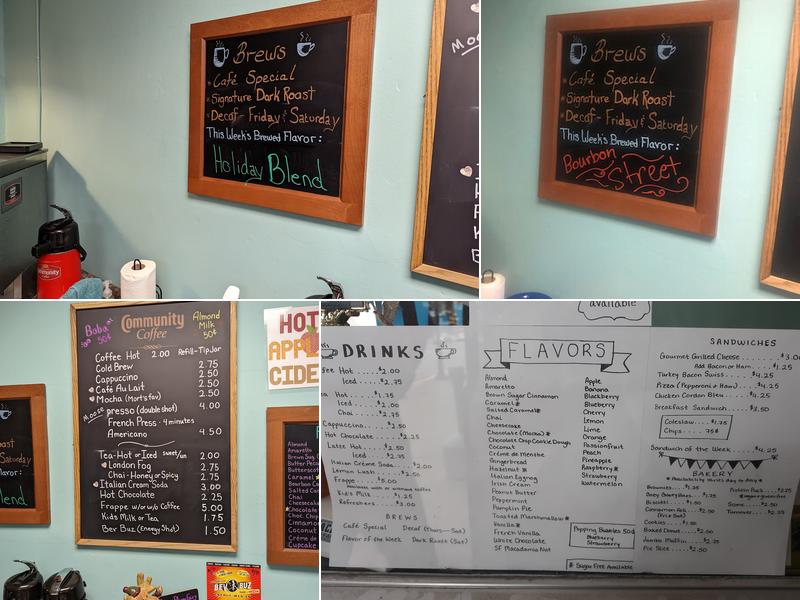 Brews
Café Special
Signature Dark Roast
Decaf - Friday & Saturday
This Week's Brewed Flavor:
Holiday Blend
Community
Brews
Café Special
Signature Dark Roast
Decaf - Friday & Saturday
This Week's Brewed Flavor:
Bourbon
Street
Boba
50¢
Community
Coffee
Almond
Milk
50¢
Coffee Hot 2.00 Refill-Tip Jar
Cold Brew 2.75
Cappuccino 2.50
Café Au Lait 2.50
Mocha (Mort's fav) 2.50
presso (double shot) 4.00
French Press - 4 minutes
Americano 4.50
Tea-Hot or Iced sweet/un 2.00
London Fog 2.75
Chai-Honey or Spicy 2.75
Italian Cream Soda 3.00
Hot Chocolate 2.25
Frappe w/or w/o Coffee 5.00
Kids Milk or Tea 1.75
Ber Buz (Energy Shot) 1.50
HOT
APPLE
CIDE
Almond
Amaretto
Brown Sug
Butter Peca
Butterscot
Caramel
Bourbon Ca
Salted Car
Chai
Cheesecake
Chocolate
Choc. Chip
Cinnamon
Coconut
Crème de
Cupcake
BEV BUZ
available
DRINKS
Hot .....$2.00
Iced ....$2.75
Hot .....$1.75
Iced ....$2.00
Chai ....$2.75
Cappuccino .....$2.50
Hot Chocolate ....$2.25
Latee Hot ....$2.50
Iced ....$3.50
Italian Crème Soda ....$2.00
Lemon Lush ....$2.50
Frappe ....$5.00
Kids Milk ....$1.25
Refreshers ....$3.00
BREWS
Café Special Decaf (Thurs-Sat)
Flavor of the Week Dark Roast (Sat)
FLAVORS
Almond
Amaretto
Brown Sugar Cinnamon
Caramel*
Salted Caramel*
Chai
Cheesecake
Chocolate (Mocha)*
Chocolate Chip Cookie Dough
Coconut
Crème de Menthe
Gingerbread
Hazelnut*
Italian Eggnog
Irish Cream
Peanut Butter
Peppermint
Pumpkin Pie
Toasted Marshmallow*
Vanilla*
French Vanilla
White Chocolate
SF Macadamia Nut
Apple
Banana
Blackberry
Blueberry
Cherry
Lemon
Lime
Orange
PassionFruit
Peach
Pineapple
Raspberry*
Strawberry
Watermelon
Popping Bubbles 50¢
Blueberry
Strawberry
* Sugar Free Available
SANDWICHES
Gourmet Grilled Cheese ....$3.0
Add Bacon or Ham ..$1.25
Turkey Bacon Swiss ....$4.25
Pizza (Pepperoni & Ham) ....$4.25
Chicken Cordon Bleu ....$4.25
Breakfast Sandwich ....$2.50
Coleslaw ....$1.75
Chips .... 75¢
Sandwich of the Week ....$4.25
BAKERY
*Availability varies day to day*
Cookies
Jumbo Muffin
Pie Slice ....$2.50